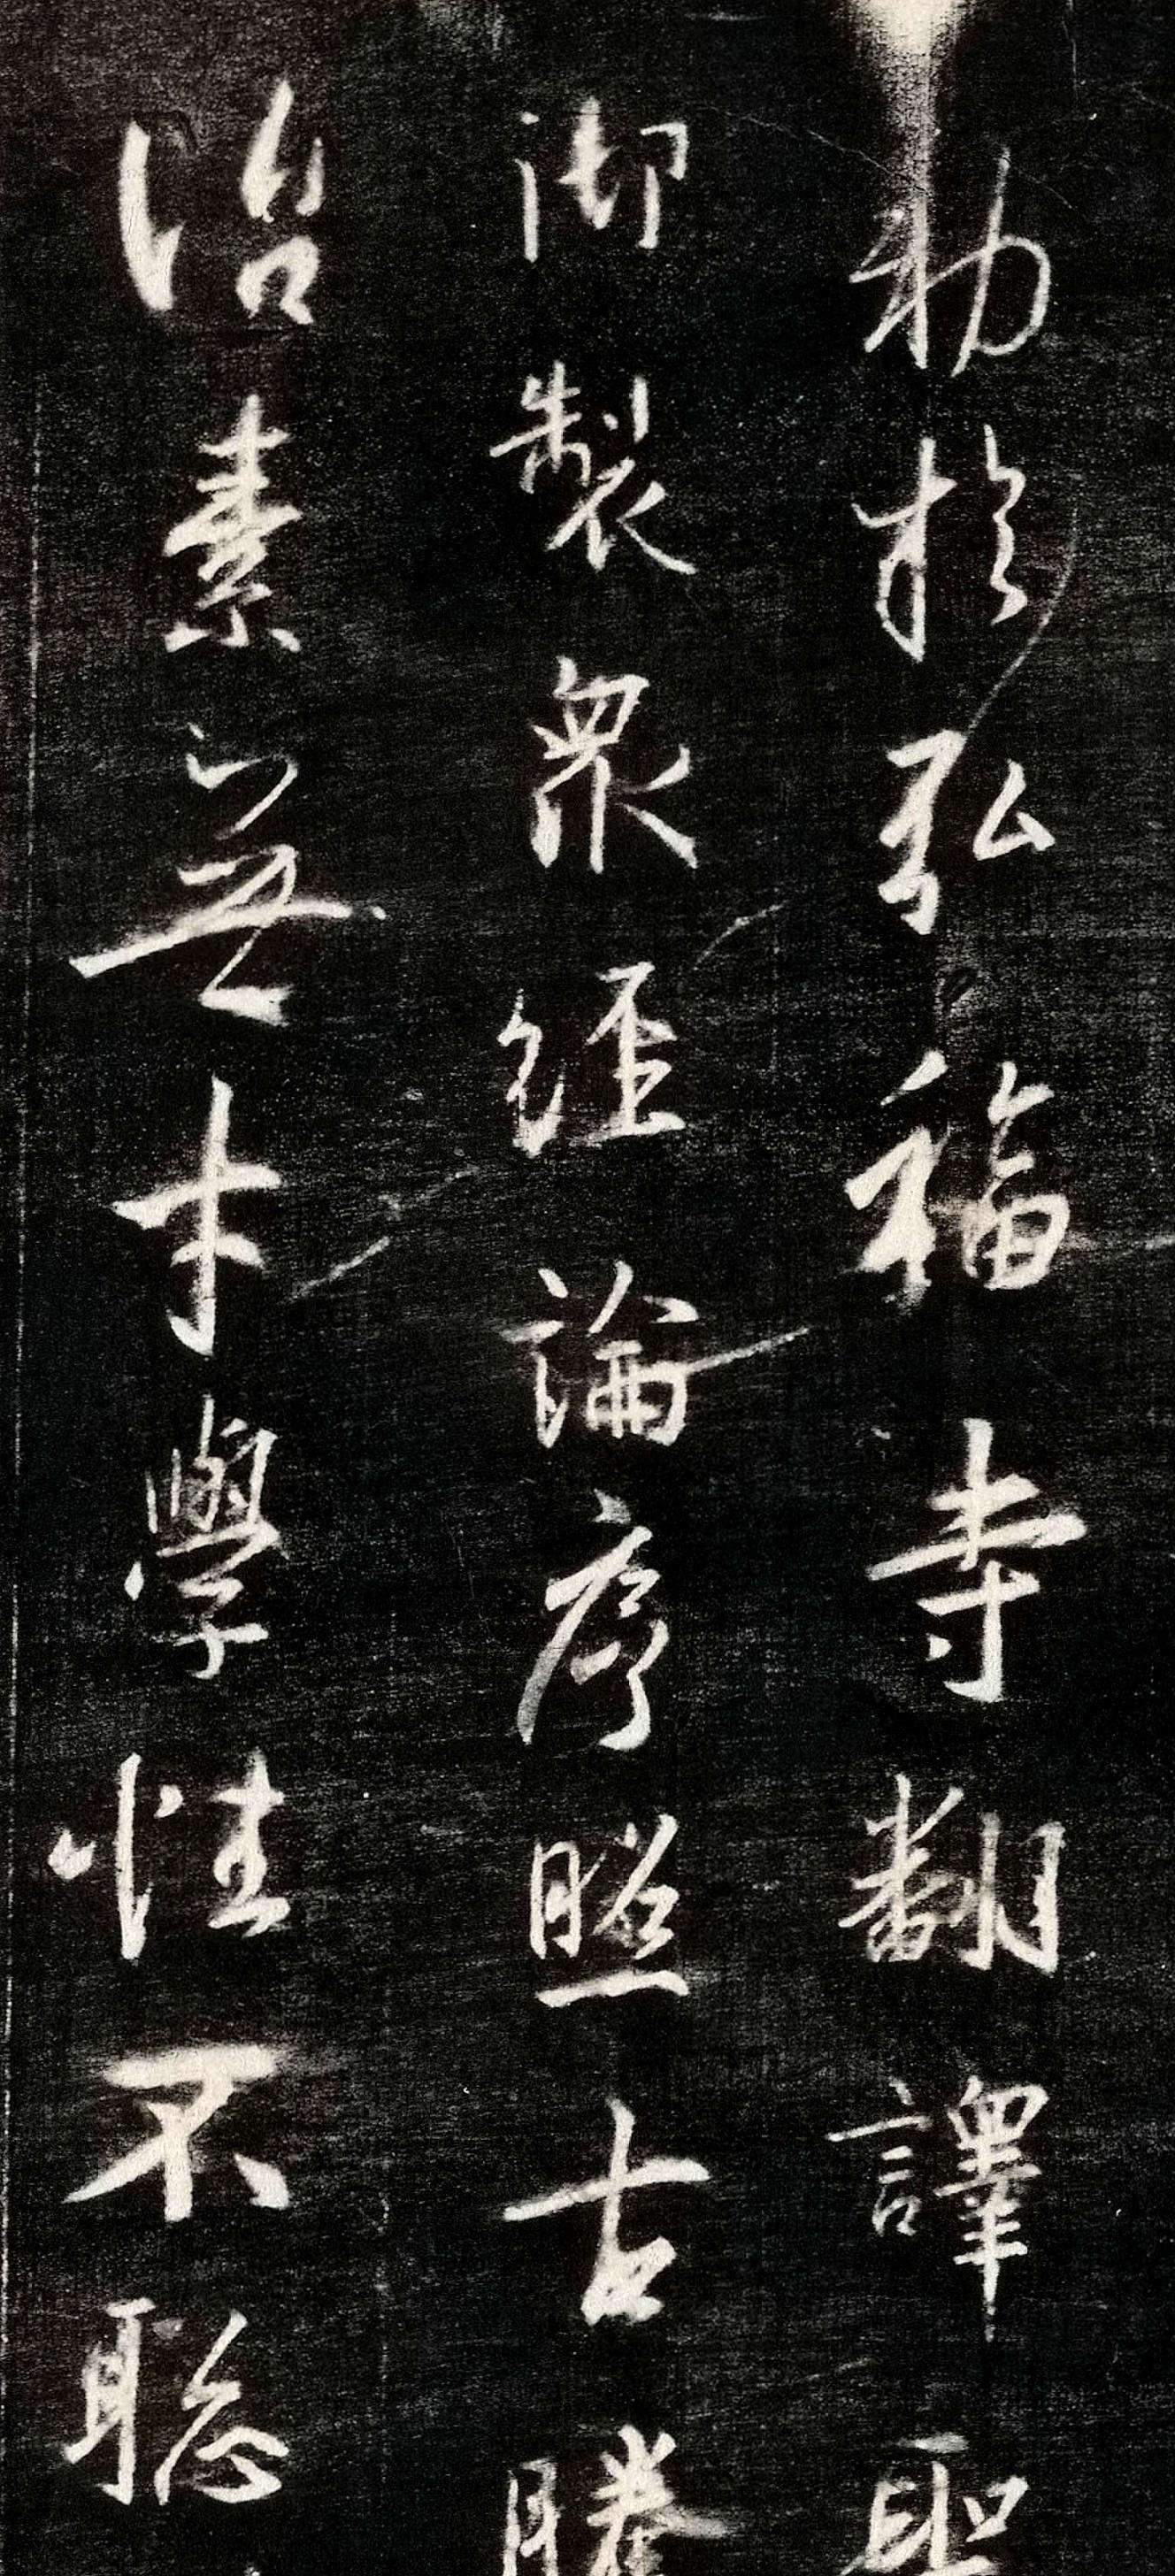 勅於弘福寺翻譯聖
御製衆經論序照古騰
治素無才學性不聡